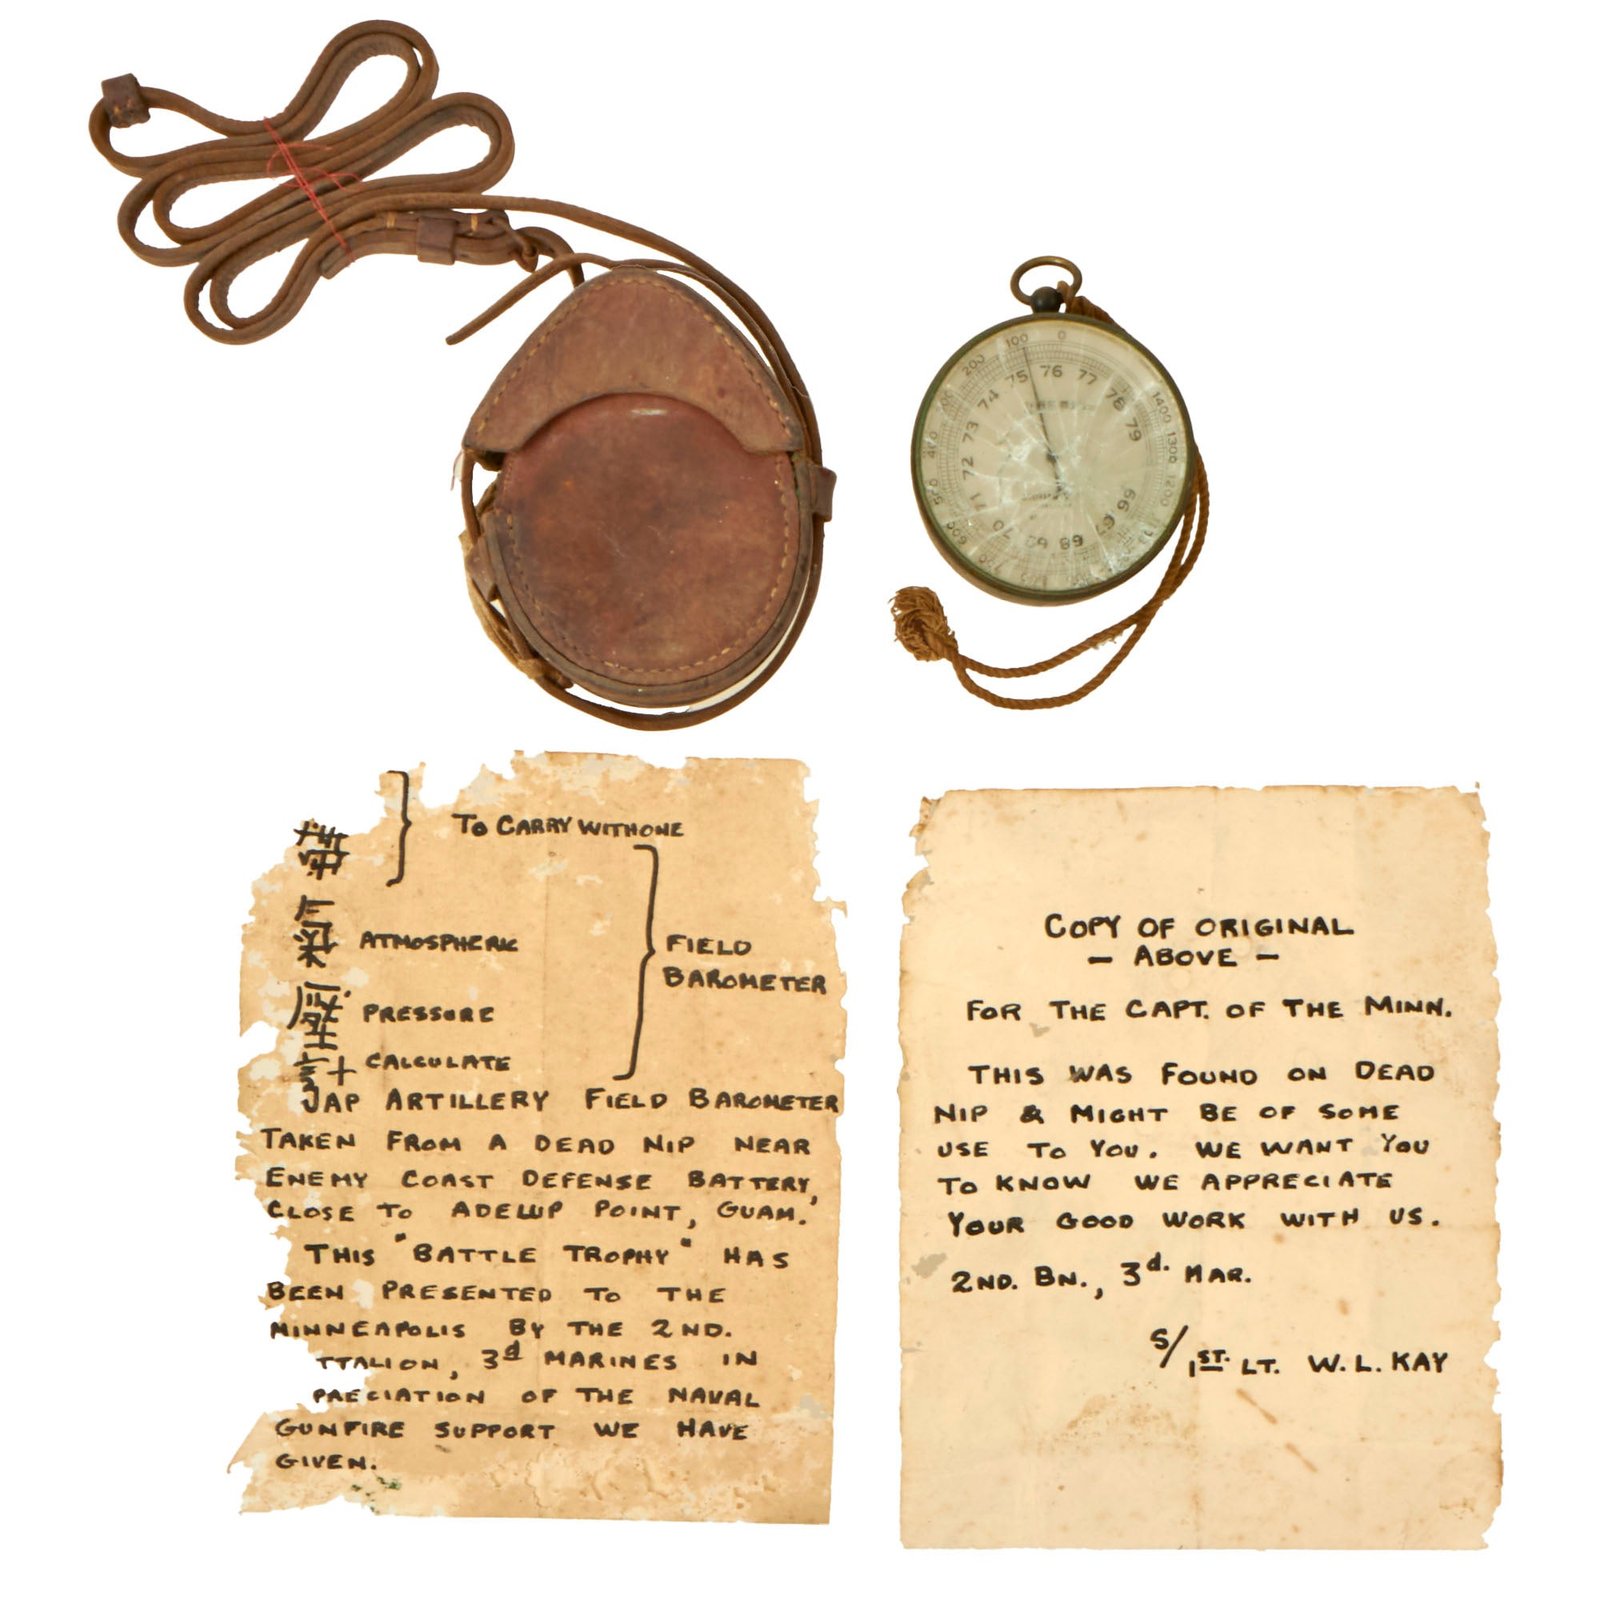 100 0
200
75 76 77
74 78
73 79
72
71
70 69 68 67 66
400
500
600
1400
1300
1200
TO CARRY WITH ONE
ATMOSPHERIC
FIELD
BAROMETER
PRESSURE
計 CALCULATE
JAP ARTILLERY FIELD BAROMETER
TAKEN FROM A DEAD NIP NEAR
ENEMY COAST DEFENSE BATTERY,
CLOSE TO ADELUP POINT, GUAM.
THIS "BATTLE TROPHY" HAS
BEEN PRESENTED TO THE
MINNEAPOLIS BY THE 2ND.
TTALION, 3d MARINES IN
PRECIATION OF THE NAVAL
GUNFIRE SUPPORT WE HAVE
GIVEN.
COPY OF ORIGINAL
- ABOVE -
FOR THE CAPT. OF THE MINN.
THIS WAS FOUND ON DEAD
NIP & MIGHT BE OF SOME
USE TO YOU. WE WANT YOU
TO KNOW WE APPRECIATE
YOUR GOOD WORK WITH US.
2ND. BN., 3d. MAR.
S/ 1ST. LT. W.L. KAY